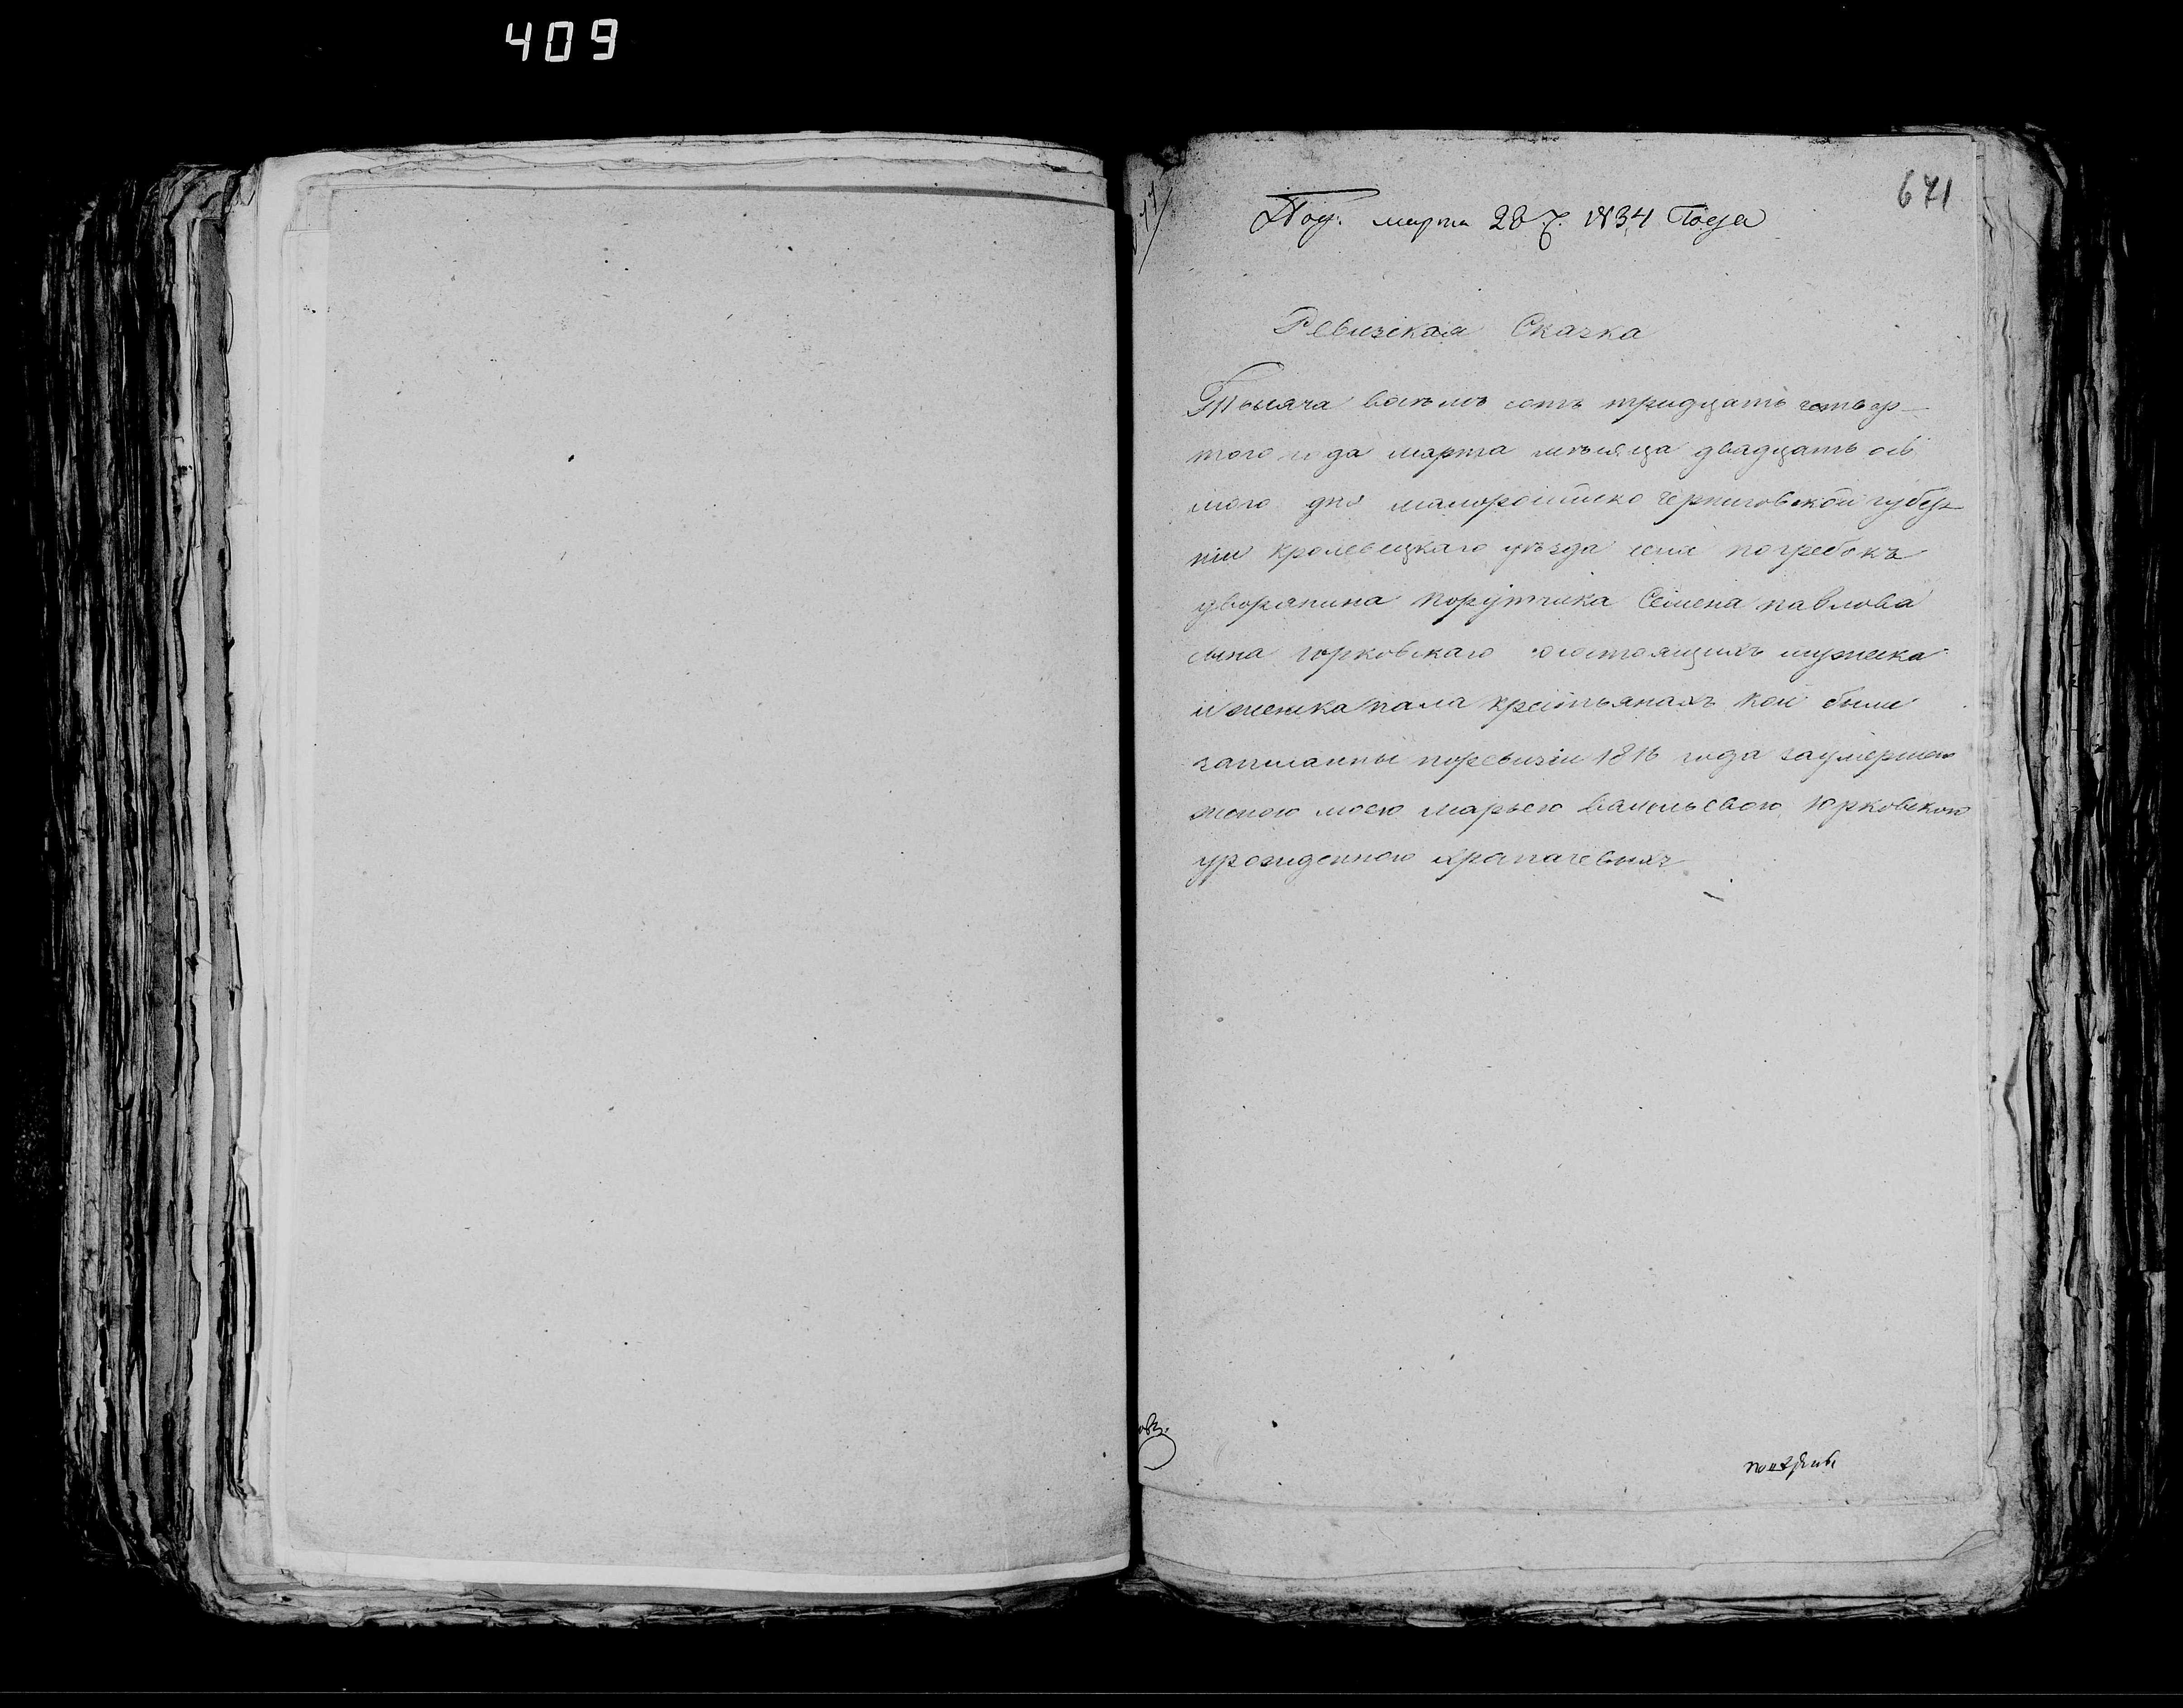 409
671
Под. марта 28 д. 1834 Года
Ревизская Сказка
Тысяча восъмъ сотъ тридцать четвер-
того года марта месяца двадцать ось
мого дня малоросииско черниговской губер-
нии кролевецкаго уъзда села погребокъ
дворянина порутчика Семена павлова
сына юрковскаго осостоящихъ мужеска
и женска пола крестьянахъ кои были
записанны поревизии 1816 года заумершею
женою моею марьею васильевою юрковскою
урожденною